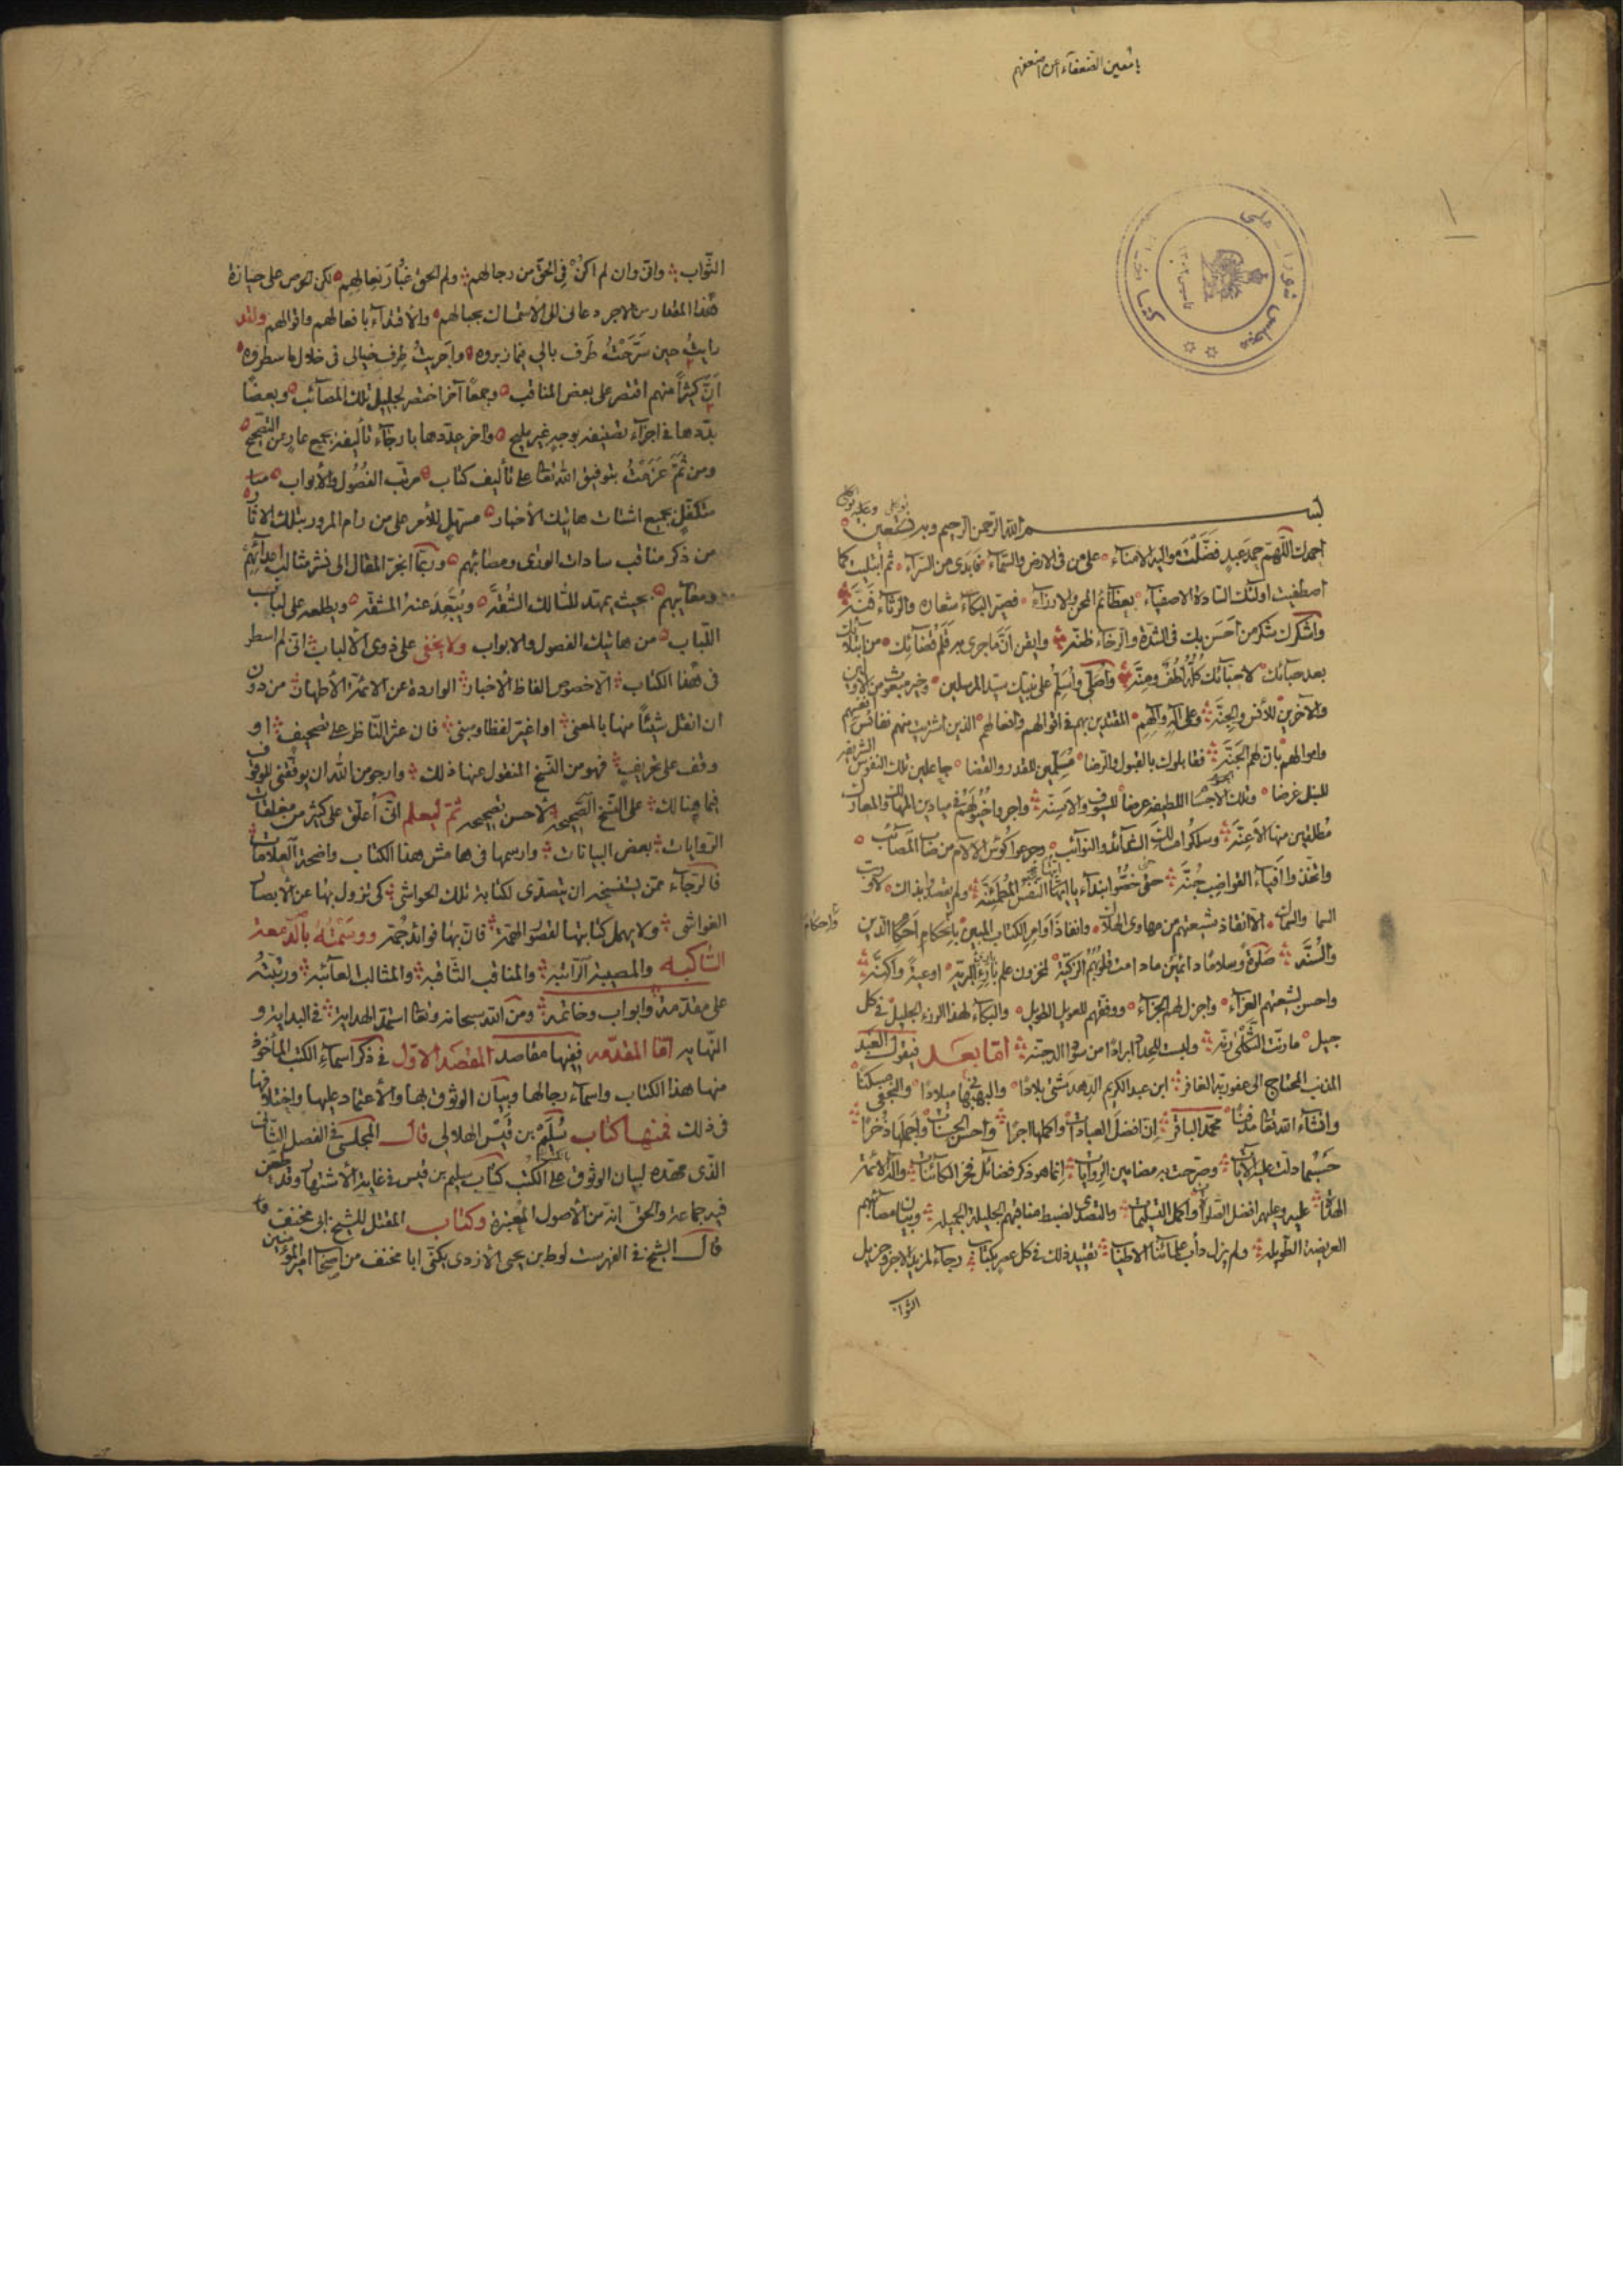 يا معين الضعفاء اعن اضعفهم
مجلس شورای ملی
کتابخانه
بسم الله الرحمن الرحيم وبه نستعين
احمدك اللّهمّ حمد عبد فضّلت مواليه الامناء على من في الارض والسّماء ثم ابتليت كما
اصطفيت اولئك السّادة الاصفياء بعظائم المحن والارزاء فصيّر البكاء شعاره والرثاء فنّه
واشكرك شكر من احسن بك في الشدّة والرخاء ظنّه وايقن انّ ما جرى به قلم قضائك من ابتلائك
بعد حبائك لاحبّائك كلّه لطف ومنّة واصلّي واسلّم على نبيّك سيّد المرسلين وخير مبعوث من الاوّلين
والآخرين للأنس والجنّة وعلى آله وآلهم المقتدين بهم في اقوالهم وافعالهم الذين اشتريت منهم نفائس انفسهم
واموالهم بانّ لهم الجنّة فقابلوك بالقبول والرّضا مسلّمين للقدر والقضا جاعلين تلك النفوس الشريفة
للنبل غرضا وتلك الاجساد اللطيفة عرضا للسيوف والاسنّة واجروا خيولهم في ميادين المهالك والمعارك
مطلقين منها الاعنّة وسلكوا مسالك الشدائد والنوائب وجرعوا كؤس الآلام من مصاب المصائب
واتّخذوا افياء القواضب جنّة حتى خصّوا بنداء يا ايّتها النفس المطمئنّة ولم يقصدوا بذلك لا وربّ
السما والسماك الّا انقاذ شيعتهم من مهاوى الهلاك وانفاذ اوامر الكتاب المبين باحكام احكام الدّين
واحكام
والسّنّة صلوة وسلاما دائمين ما دامت قلوبهم الزكيّة لمخزون علم بارئ البريّة اوعية واكنّة
واحسن لشيعتهم العزاء واجزل لهم الجزاء ووفّقهم للعويل الطويل والبكاء لهذا الرزء الجليل في كل
جيل ما رنّت الثكلى رنّة ولبست للحداد ابرادا من سواد الدجنّة امّا بعد فيقول العبد
المذنب المحتاج الى عفو ربّه الغافر ابن عبد الكريم الدهدشتى بلادا والبهبهاني ميلادا والنجفي مسكنا
وانشاء الله تعالى مدفنا محمّد الباقر انّ افضل العبادات واكملها اجرا واحسن الحسنات واجملها ذخرا
حسبما دلّت عليه الآيات وصرّحت به مضامين الروايات انما هو ذكر فضائل فخر الكائنات وآله الائمّة
الهداة عليه وعليهم افضل الصلوات واكمل التسليمات والتصدّى لضبط مناقبهم الجليلة الجميلة وبيان مصائبهم
العريضة الطويلة ولم يزل دأب علمائنا الاطياب تقييد ذلك في كل عصر بكتاب رجاء لمزيد الاجر وجزيل
الثواب
الثّواب وانّي وان لم اكن في الحقّ من رجالهم ولم الحق غبار نعالهم لكن الحرص على حيازة
هذا المقدار من الاجر دعاني الى الاستمساك بحبالهم والاقتداء بافعالهم واقوالهم ولقد
رايت حين سرّحت طرف بالي فيما زبروه واجريت طرف خيالي في خلال ما سطروه
انّ كثيرا منهم اقتصر على بعض المناقب وجمعا آخر اختصر لجليل تلك المصائب وبعضا
بدّدها في اجزاء تصنيفه بوجه غير مليح وآخر عدّدها بارجاء تأليفه بجمع عار من التصحيح
ومن ثمّ عزمت بتوفيق الله تعالى على تأليف كتاب مرتّب الفصول والأبواب
متكفّل بجميع اشتات هاتيك الأخبار مسهل للأمر على من رام المرور بتلك الآثار
من ذكر مناقب سادات الورى ومصائبهم وربّما انجرّ المقال الى نشر مثالب اعدائهم
ومعايبهم بحيث يمهّد للسّالك الشّقّة ويبعّد عنه المشقّة ويطلعه على لباب
اللباب من هاتيك الفصول والابواب ولا يخفى على ذوي الألباب انّي لم اسطر
في هذا الكتاب الّا خصوص الفاظ الأخبار الواردة عن الائمّة الأطهار من دون
ان انقل شيئا منها بالمعنى او اغيّر لفظا ومبنى فان عثر النّاظر على تصحيف او
وقف على تحريف فهو من النّسخ المنقول عنها ذلك وارجو من الله ان يوفّقني للوقوف
فيما هنالك على النّسخ الصّحيحة لأحسن تصحيحه ثمّ ليعلم انّي أعلّق على كثير من مغلقات
الرّوايات بعض البيانات وارسمها في هامش هذا الكتاب واضحة العلامات
فالرّجاء ممّن يستنسخه ان يتصدّى لكتابة تلك الحواشي كى تزول بها عن الأبصار
الغواشى ولا يهمل كتابتها لقصور الهمّة فانّ بها فوائد جمّة ووسمته بالدّمعة
السّاكبه والمصيبة الرّاتبة والمناقب الثّاقبة والمثالب العآئبة ورتّبته
على مقدّمة وابواب وخاتمة ومن الله سبحانه وتعالى استمدّ الهداية في البداية و
النّهاية امّا المقدّمه ففيها مقاصد المقصد الاوّل في ذكر اسماء الكتب المأخوذ
منها هذا الكتاب واسماء رجالها وبيان الوثوق بها والأعتماد عليها واختلافها
في ذلك فمنها كتاب سليم بن قيس الهلالي قال المجلسي في الفصل الثّاني
الّذى مهّده لبيان الوثوق على الكتب كتاب سليم بن قيس في غاية الأشتهار وقد طعن
فيه جماعة والحقّ انّه من الأصول المعتبرة وكتاب المقتل للشيخ ابى مخنف
قال الشيخ في الفهرست لوط بن يحيى الازدى يكنّى ابا مخنف من اصحاب امير المؤمنين